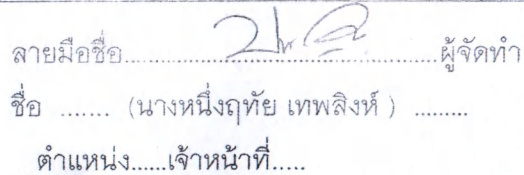 ลายมือชื่อ.......................................ผู้จัดทำ
ชื่อ ....... (นางหนึ่งฤทัย เทพสิงห์ ) .........
ตำแหน่ง......เจ้าหน้าที่.....